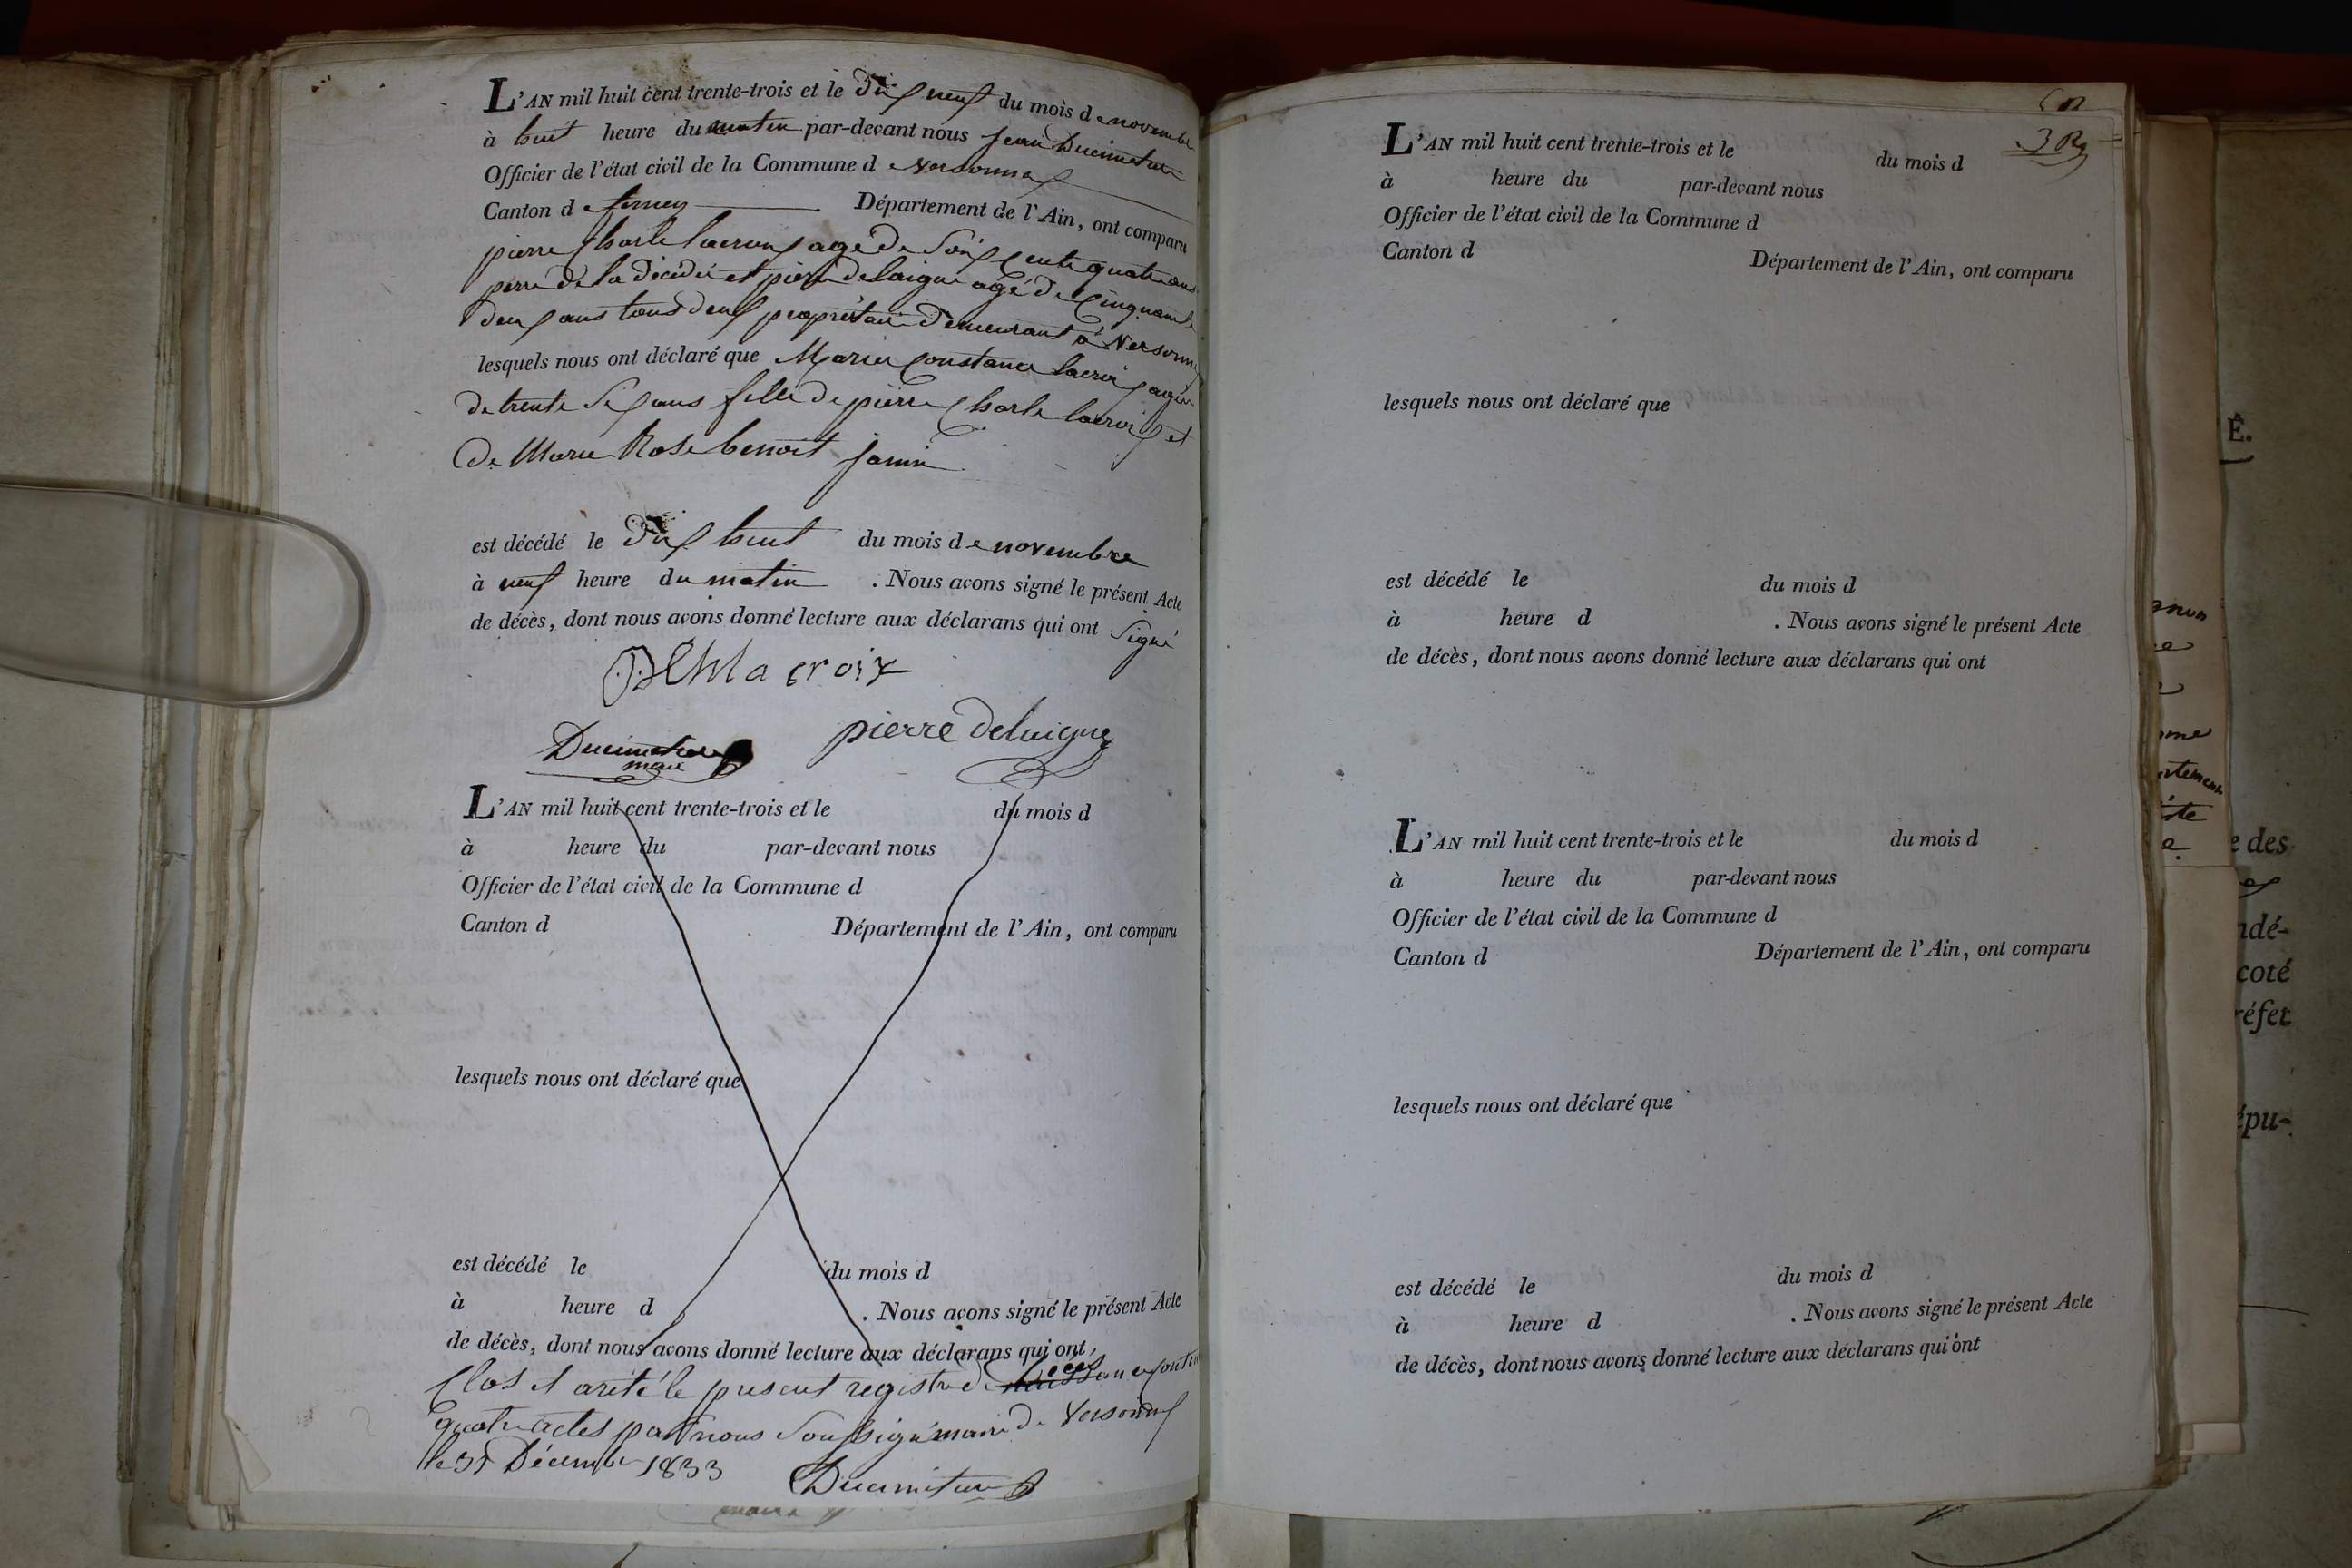 L'AN mil huit cent trente-trois et le dix neuf du mois de novembre
à huit heure du matin par-devant nous jean Ducimetière
Officier de l'état civil de la Commune de Versonnex
Canton de ferney Département de l'Ain, ont comparu
pierre Charle lacroix agé de soixcente quatre ans
perre de la décedée et pierre delaigue agé de Cinquante
deux ans tous deux propriétaire demeurant à Versonnex
lesquels nous ont déclaré que Marie Constance lacroix agée
de trente six ans fille de pierre Charle lacroix et
de Marie Rose benoit janin
est décédé le dix huit du mois de novembre
à neuf heure du matin . Nous avons signé le présent Acte
de décès, dont nous avons donné lecture aux déclarans qui ont signé
lacroix
Ducimetière pierre delaigue
maire
L'AN mil huit cent trente-trois et le du mois d
à heure du par-devant nous
Officier de l'état civil de la Commune d
Canton d Département de l'Ain, ont comparu
lesquels nous ont déclaré que
est décédé le du mois d
à heure d . Nous avons signé le présent Acte
de décès, dont nous avons donné lecture aux déclarans qui ont
Clos et arêté le present registre de décès
quatre actes par nous soussigné maire de Versonnex
le 31 Décembre 1833 Ducimetière
maire
L'AN mil huit cent trente-trois et le du mois d
à heure du par-devant nous
Officier de l'état civil de la Commune d
Canton d Département de l'Ain, ont comparu
lesquels nous ont déclaré que
est décédé le du mois d
à heure d . Nous avons signé le présent Acte
de décès, dont nous avons donné lecture aux déclarans qui ont
L'AN mil huit cent trente-trois et le du mois d
à heure du par-devant nous
Officier de l'état civil de la Commune d
Canton d Département de l'Ain, ont comparu
lesquels nous ont déclaré que
est décédé le du mois d
à heure d . Nous avons signé le présent Acte
de décès, dont nous avons donné lecture aux déclarans qui ont
Ê.
e des
ndé-
coté
réfet
épu-